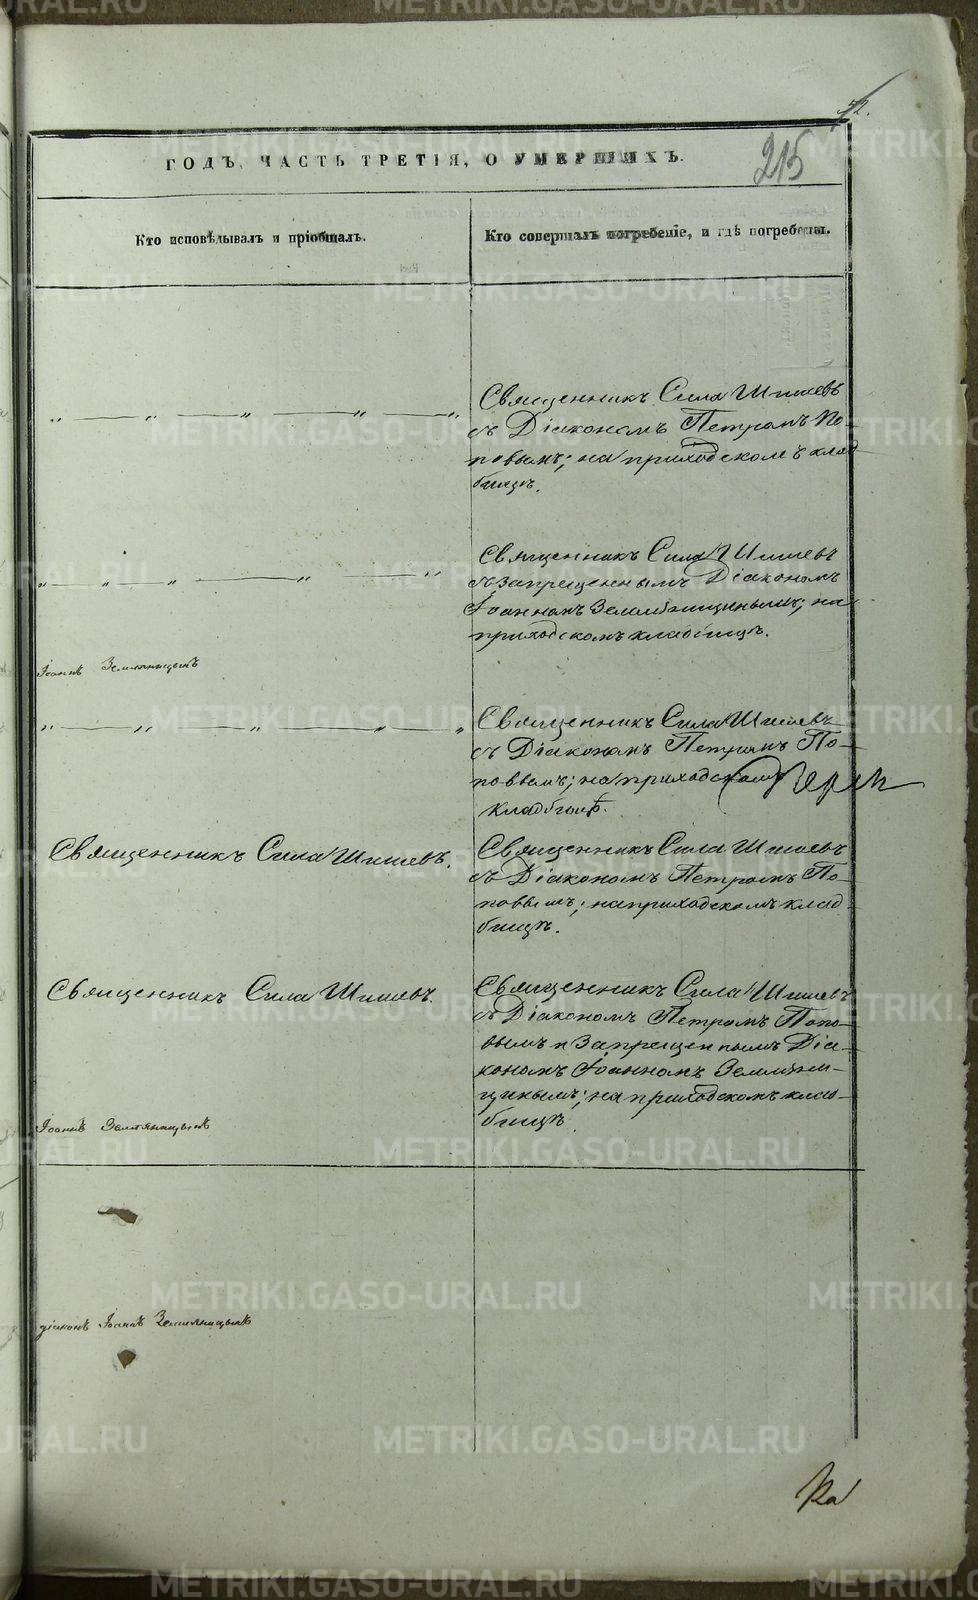 ГОДЪ, ЧАСТЬ ТРЕТІЯ, О УМЕРШИХЪ.
215
Кто исповѣдывалъ и пріобщалъ.
Кто совершалъ погребеніе, и гдѣ погребены.
Священникъ Сила Шишевъ
съ Діакономъ Петромъ По-
повымъ; на приходскомъ клад
бищѣ.
Священникъ Сила Шишевъ
съ запрещеннымъ Діакономъ
Іоанномъ Земляницинымъ; на
приходскомъ кладбищѣ.
Іоаннъ Земляницынъ
Священникъ Сила Шишевъ
съ Діакономъ Петромъ По-
повымъ; на приходскомъ
кладбищѣ.
Священникъ Сила Шишевъ.
Священникъ Сила Шишевъ
съ Діакономъ Петромъ По-
повымъ; на приходскомъ клад
бищѣ.
Священникъ Сила Шишевъ.
Священникъ Сила Шишевъ
съ Діакономъ Петромъ Попо-
вымъ и запрещеннымъ Діа-
кономъ Іоанномъ Земляни-
цинымъ; на приходскомъ клад-
бищѣ.
Іоаннъ Земляницынъ
діаконъ Іоаннъ Земляницынъ
METRIKI.GASO-URAL.RU